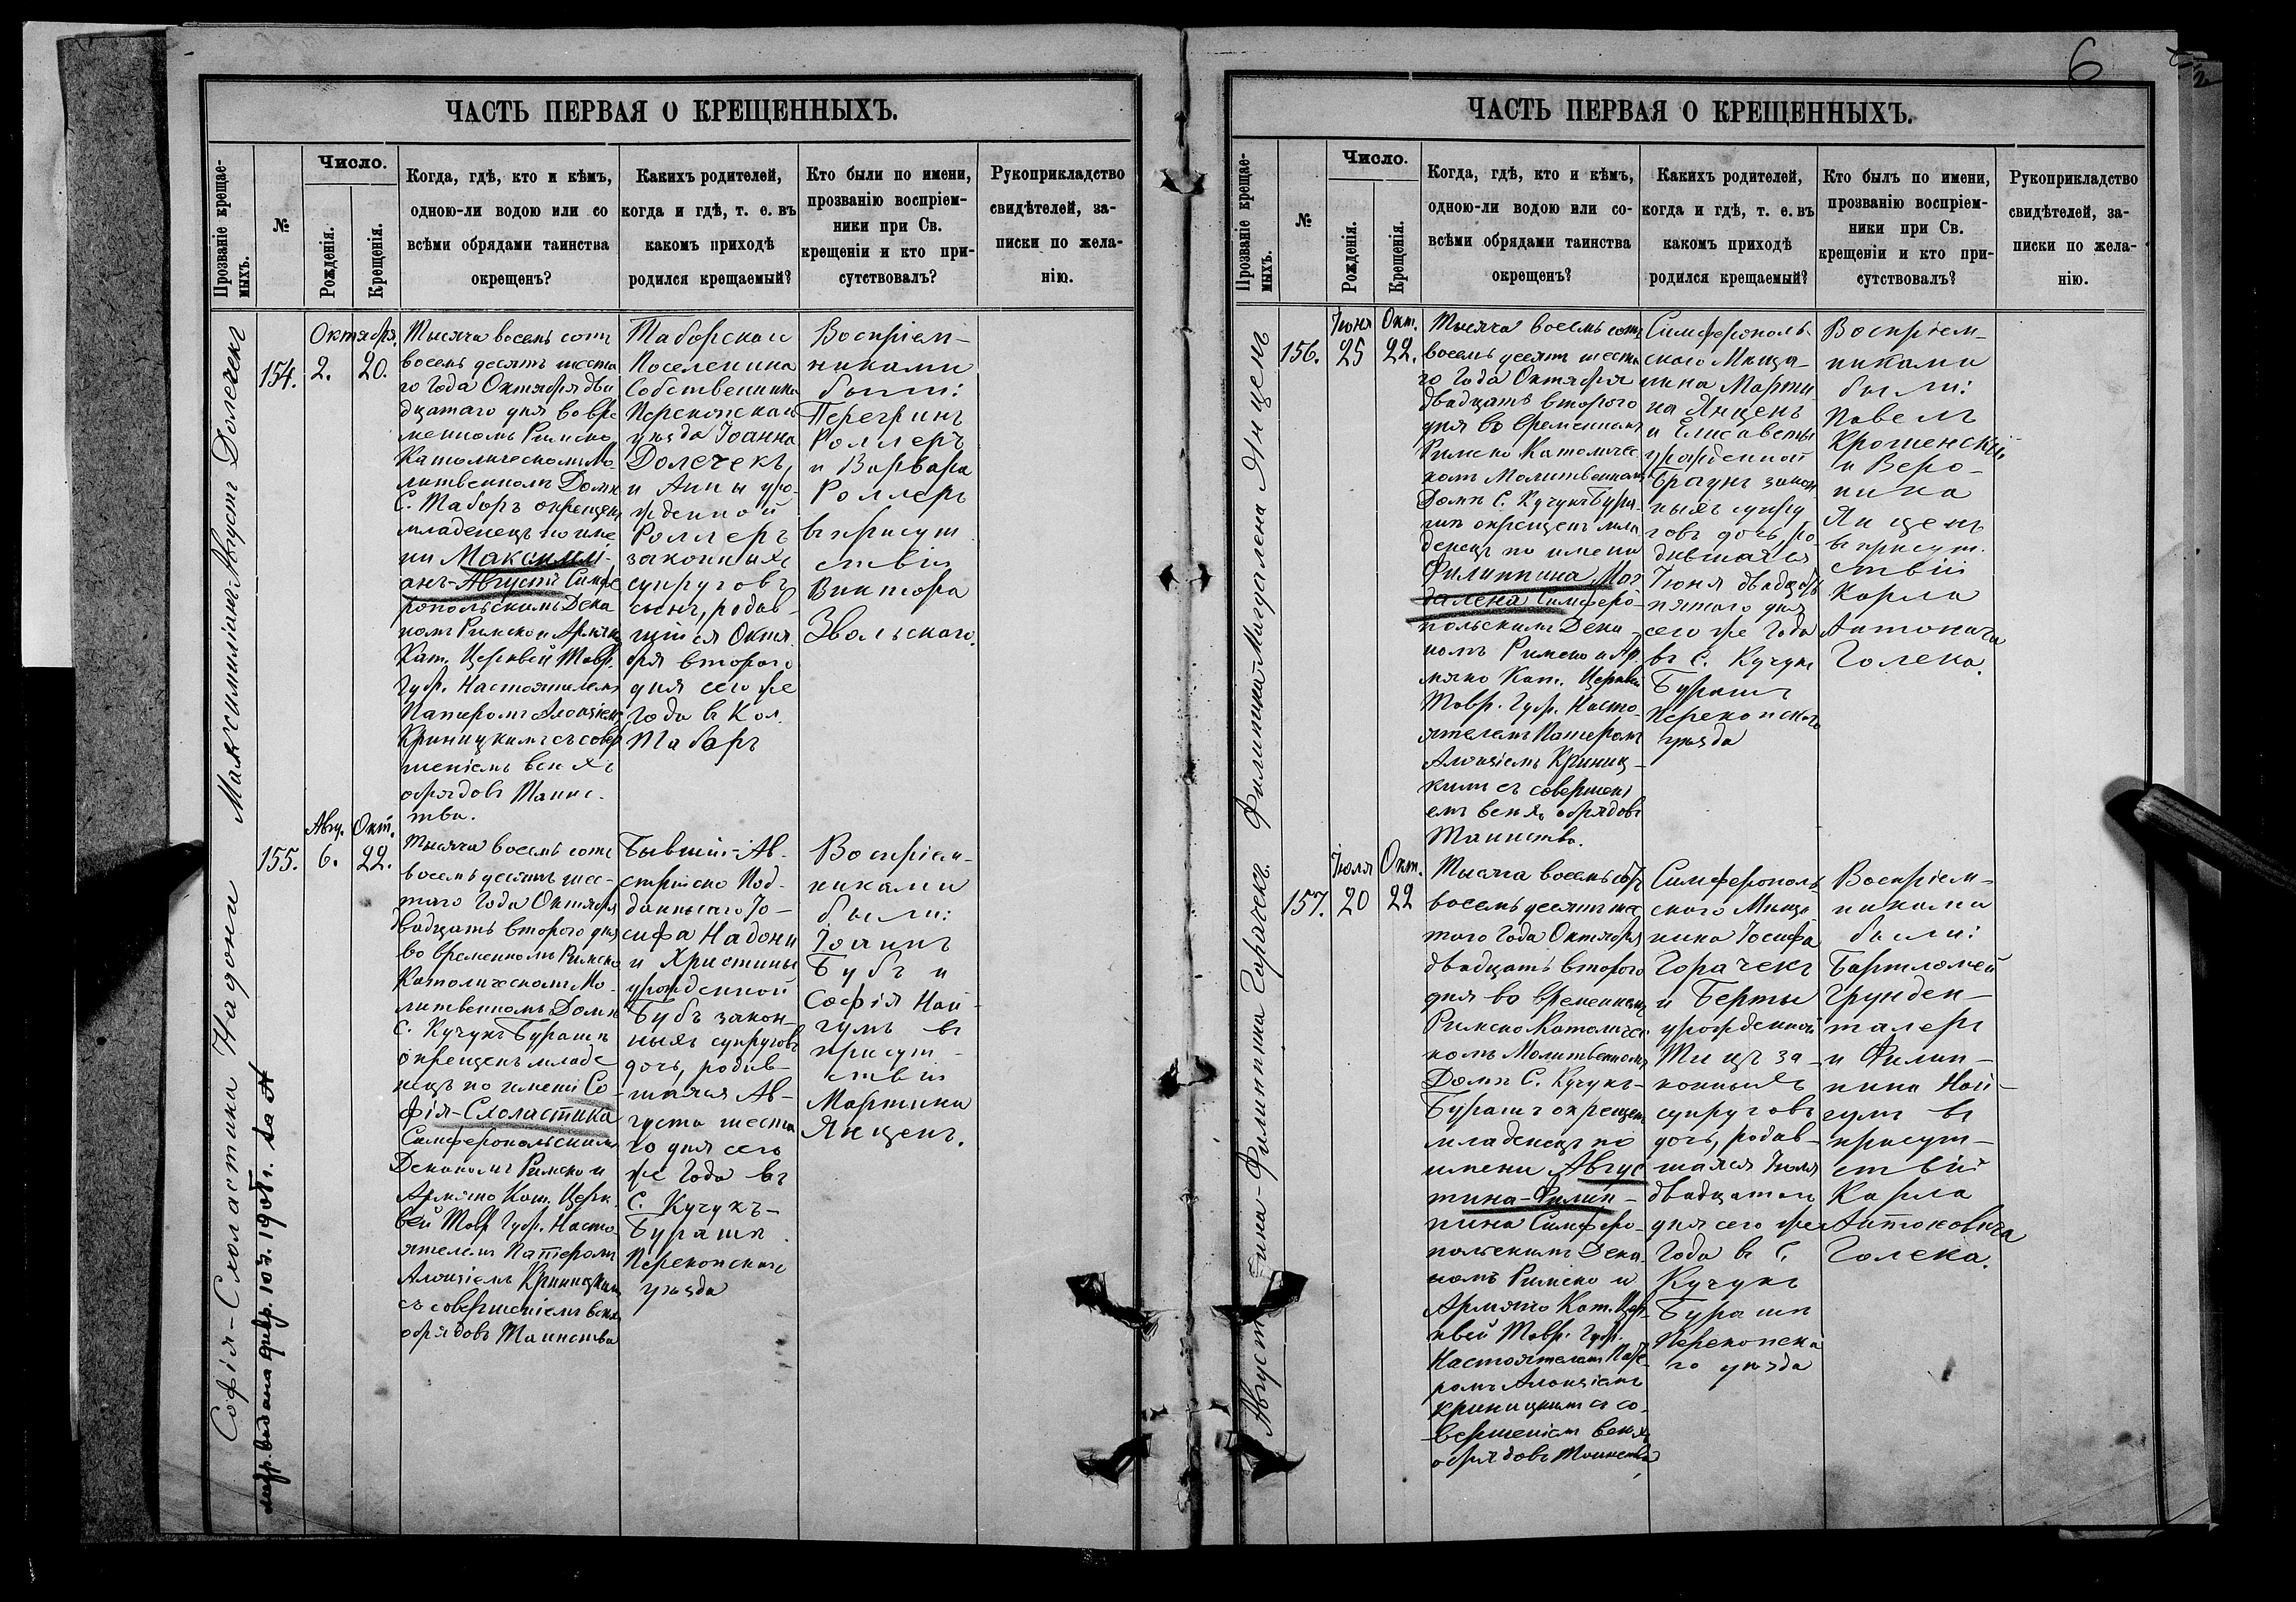 6
ЧАСТЬ ПЕРВАЯ О КРЕЩЕННЫХЪ.
Прозваніе крещае-
мыхъ.
№
Число.
Рожденія.
Крещенія.
Когда, гдѣ, кто и кѣмъ,
одною-ли водою или со
всѣми обрядами таинства
окрещенъ?
Какихъ родителей,
когда и гдѣ, т. е. въ
какомъ приходѣ
родился крещаемый?
Кто были по имени,
прозванію воспріем-
ники при Св.
крещеніи и кто при-
сутствовалъ?
Рукоприкладство
свидѣтелей, за-
писки по жела-
нію.
Максимиліанъ Августъ Долечекъ
154.
Октября.
2.
20.
Тысяча восемь сотъ
восемь десятъ шеста
го Года Октября два
дцатаго дня во вре
менномъ Римско
Католическомъ Мо
литвенномъ Домѣ
С. Таборъ окрещенъ
младенецъ по име
ни Максимилі-
анъ-Августъ Симфе
ропольскимъ Дека
номъ Римско и Армяно
Кат. Церквей Тавр.
Губ. Настоятелемъ
Патеромъ Алоизіемъ
Криницкимъ съ совер
шеніемъ всѣхъ
обрядовъ Таинс-
тва.
Таборскаго
Поселенина
Собственника
Перекопскаго
уѣзда Іоанна
Долечекъ,
и Анны уро-
жденной
Роллеръ
законныхъ
супруговъ
сынъ, родив-
шійся Октя
бря второго
дня сего же
Года въ Кол.
Таборъ
Воспріем-
никами
были:
Перегринъ
Роллеръ
и Варвара
Роллеръ
въ присут
ствіи
Виктора
Звольскаго.
Софія-Схоластика Надони
155.
Авгу.
6.
Окт.
22.
Тысяча восемь сотъ
восемь десятъ шес-
таго Года Октября
двадцать второго дня
во временномъ Римско
Католическомъ Мо-
литвенномъ Домѣ
С. Кучукъ Бурашъ
окрещенъ младе
нецъ по имени Со-
фія-Схоластика
Симферопольскимъ
Деканомъ Римско и
Армяно Кат. Церк
вей Тавр Губ. Насто-
ятелемъ Патеромъ
Алоизіемъ Криницкимъ
съ совершеніемъ всѣхъ
обрядовъ Таинства
Бывшій Ав-
стрійско Под-
даннаго Іо-
сифа Надони
и Христины
урожденной
Бубъ закон-
ныхъ супруговъ
дочь, родив-
шаяся Ав-
густа шеста
го дня сего
же Года въ
С. Кучукъ-
Бурашъ
Перекопскаго
уѣзда
Воспріем-
никами
были:
Іоаннъ
Бубъ и
Софія Най-
гумъ въ
присут-
ствіи
Мартина
Янценъ.
ЧАСТЬ ПЕРВАЯ О КРЕЩЕННЫХЪ.
Прозваніе крещае-
мыхъ.
№
Число.
Рожденія.
Крещенія.
Когда, гдѣ, кто и кѣмъ,
одною-ли водою или со-
всѣми обрядами таинства
окрещенъ?
Какихъ родителей,
когда и гдѣ, т. е. въ
какомъ приходѣ
родился крещаемый?
Кто былъ по имени,
прозванію воспріем-
ники при Св.
крещеніи и кто при-
сутствовалъ?
Рукоприкладство
свидѣтелей, за-
писки по жела-
нію.
Филиппина-Магдалена Янценъ
156.
Іюня
25
Окт.
22.
Тысяча восемь сотъ
восемь десятъ шеста
го Года Октября
двадцать второго
дня во временномъ
Римско Католичес
комъ Молитвенномъ
Домѣ С. Кучукъ Бура-
шъ окрещенъ мла
денецъ по имени
Филиппина Маг
далена Симферо-
польскимъ Дека-
номъ Римско и Ар-
мяно Кат. Церквей
Тавр. Губ. Насто-
ятелемъ Патеромъ
Алоизіемъ Криниц-
кимъ съ совершені
емъ всѣхъ обрядовъ
Таинства.
Симферополь-
скаго Мѣща-
нина Марти
на Янценъ
и Елисаветы
урожденной
Браунъ закон
ныхъ супру
говъ дочь, ро-
дившаяся
Іюня двадцать
пятаго дня
сего же Года
въ С. Кучукъ
Бурашъ
Перекопскаго
уѣзда
Воспріем-
никами
были:
Павелъ
Крошенскій
и Веро-
ника
Янценъ
въ присут-
ствіи
Карла
Антоновича
Голека.
Августина-Филиппина Горачекъ.
157.
Іюля
20
Окт.
22
Тысяча восемь сотъ
восемь десятъ шес
таго Года Октября
двадцать второго
дня во временномъ
Римско Католичес
комъ Молитвенномъ
Домѣ С. Кучукъ-
Бурашъ окрещенъ
младенецъ по
имени Авгус
тина-Филип-
пина Симферо-
польскимъ Дека-
номъ Римско и
Армяно Кат. Цер-
квей Тавр. Губ.
Настоятелемъ Пате-
ромъ Алоизіемъ
Криницкимъ съ со-
вершеніемъ всѣхъ
обрядовъ Таинства
Симферополь
скаго Мѣща
нина Іосифа
Горачекъ
и Берты
урожденной
Тицъ за-
конныхъ
супруговъ
дочь, родив-
шаяся Іюля
двадцатаго
дня сего же
Года въ С.
Кучукъ
Бурашъ
Перекопска
го уѣзда
Воспріем-
никами
были:
Бартломей
Грунден-
талеръ
и Филип-
пина Най-
гумъ въ
присут-
ствіи
Карла
Антоновича
Голека.